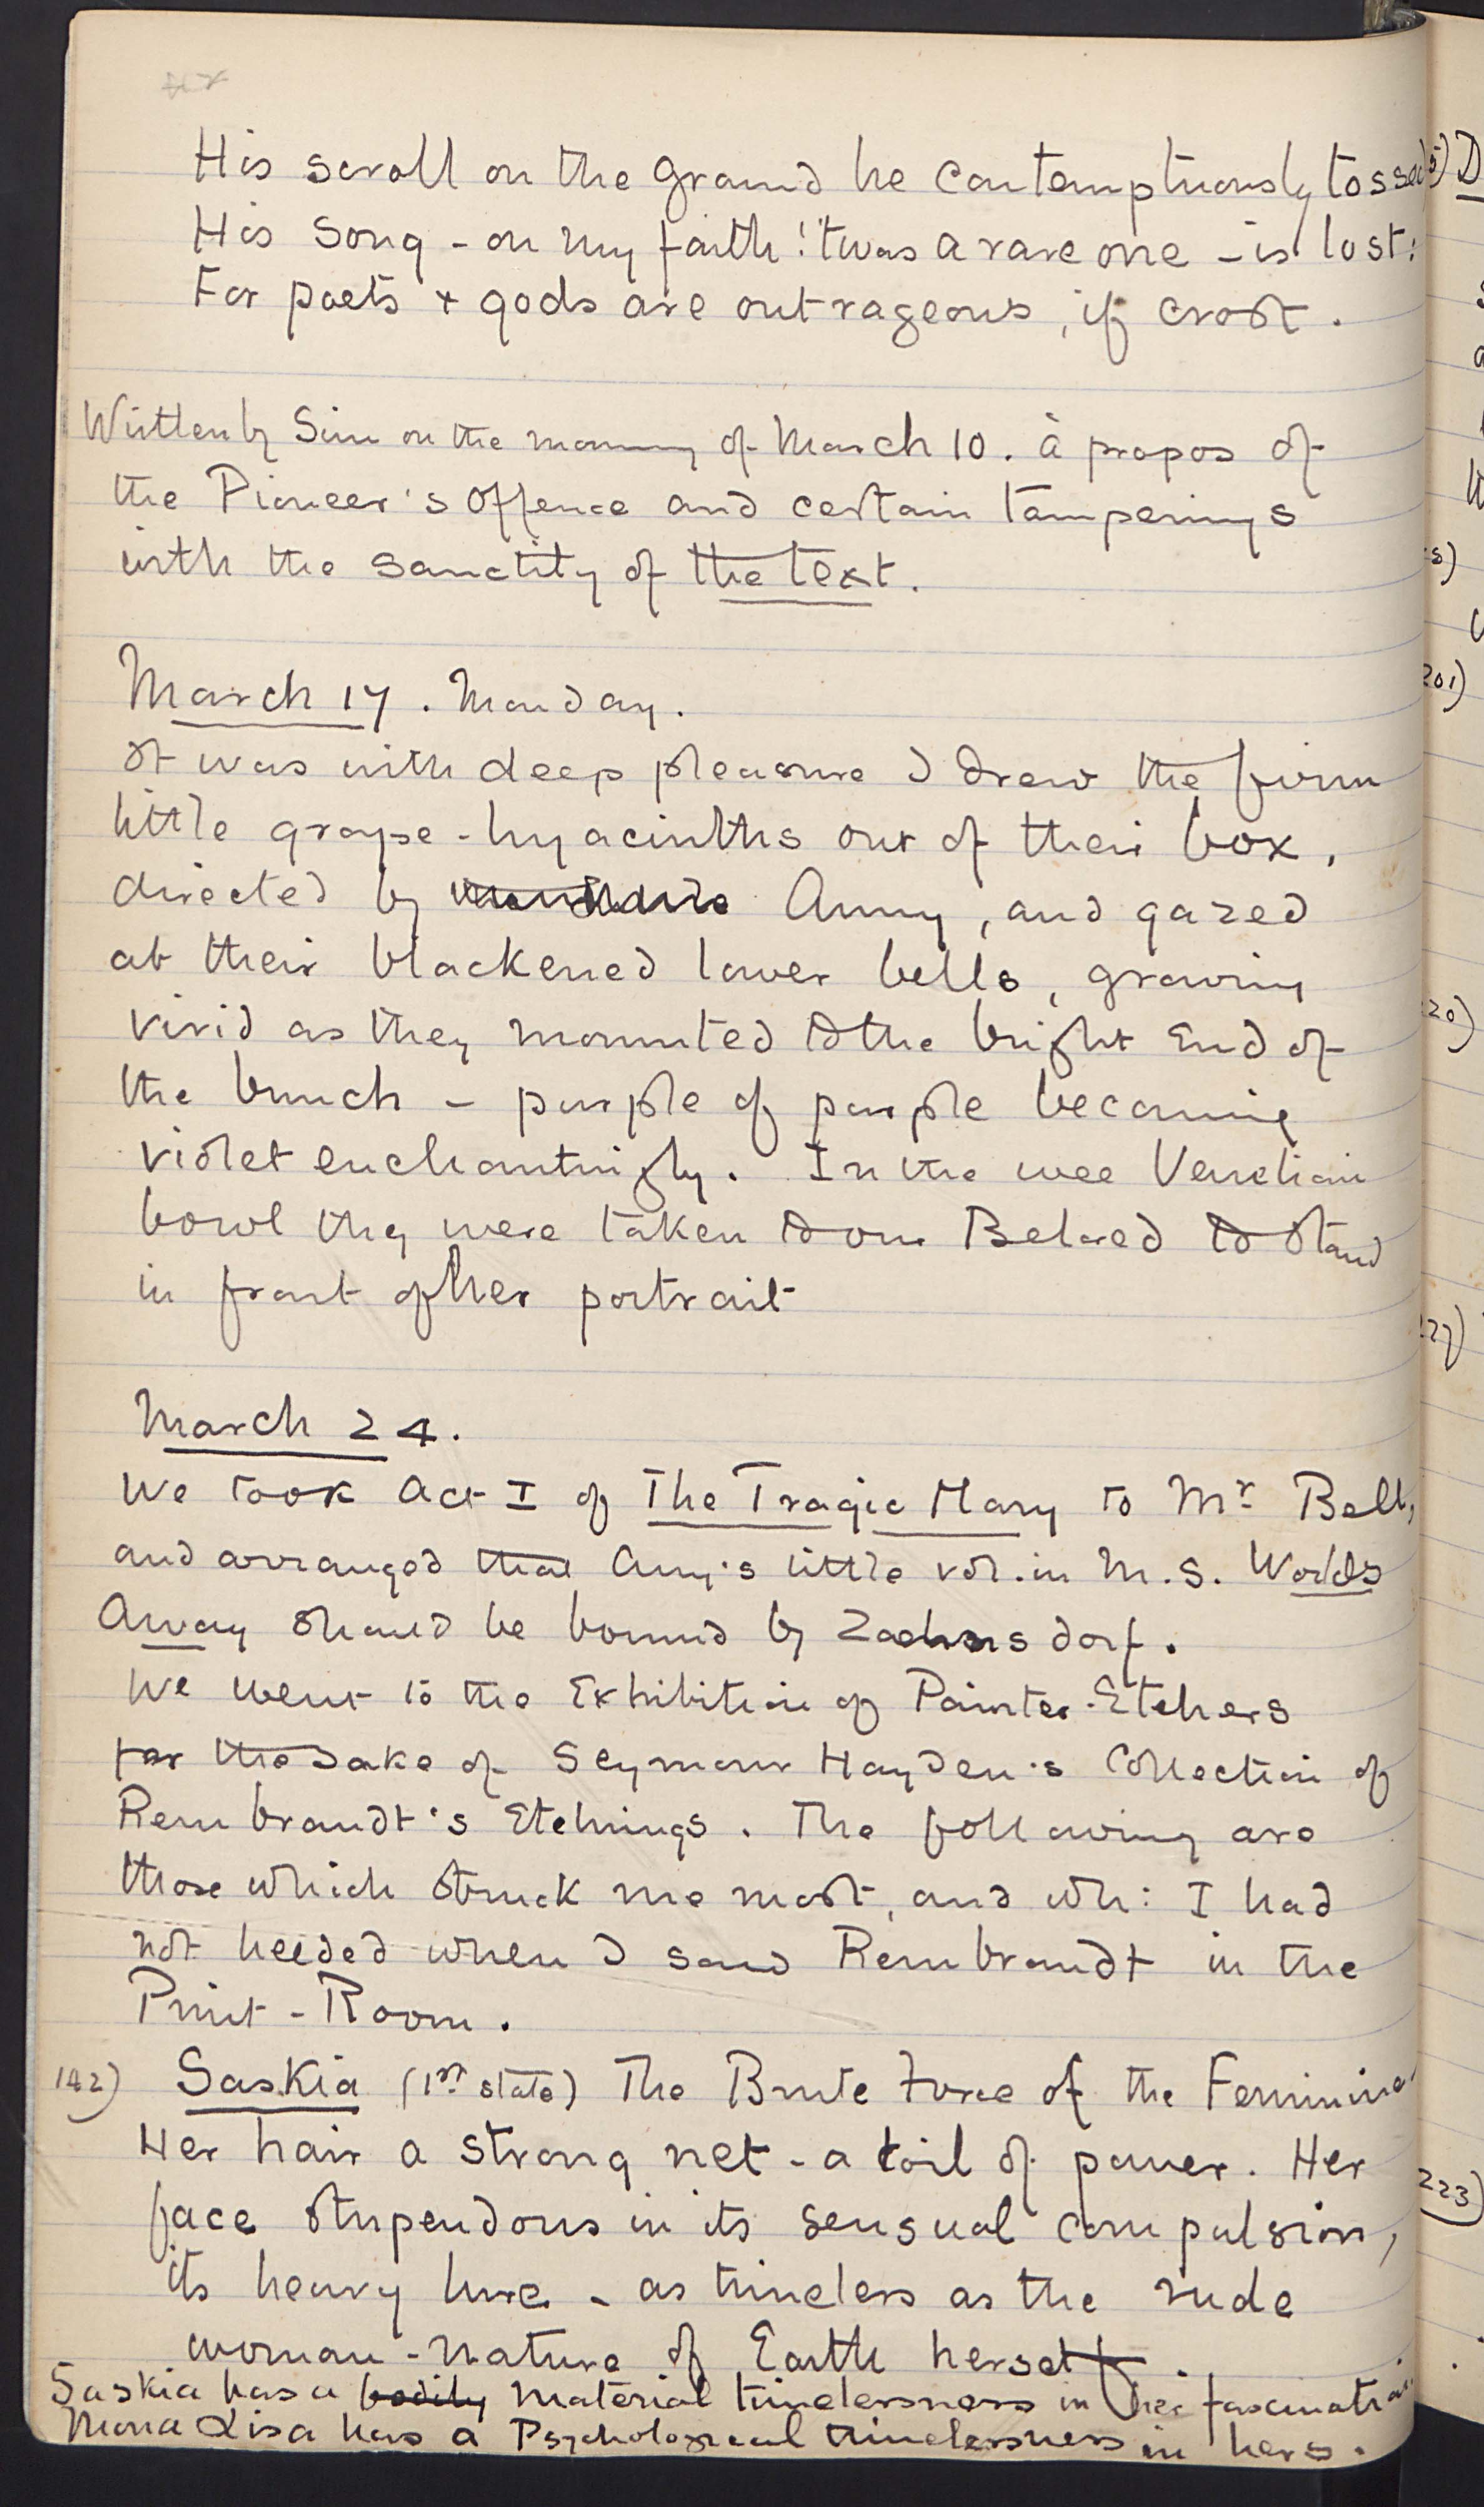 His scroll on the ground he contemptuously tossed
His song - on my faith! 'twas a rare one - is lost:
For poets + gods are outrageous, if crost.
Written by Sim on the morning of March 10. à propos of
the Pioneer's offence and certain tamperings
with the sanctity of the text.
March 17. Monday.
It was with deep pleasure I drew the firm
little grape-hyacinths out of their box,
directed by Amy, and gazed
at their blackened lower bells, growing
vivid as they mounted to the bright end of
the bunch - purple of purple becoming
violet enchantingly. In the wee Venetian
bowl they were taken to our Beloved to stand
in front of her portrait
March 24.
We took Act I of The Tragic Mary to Mr Bell,
and arranged that Amy's little vol. in M.S. Worlds
Away should be bound by Zaehnsdorf.
We went to the Exhibition of Painter-Etchers
for the sake of Seymour Hayden's Collection of
Rembrandt's Etchings. The following are
those which struck me most, and wh: I had
not heeded when I saw Rembrandt in the
Print-Room.
142) Saskia (1st state) The Brute Force of the Feminine
Her hair a strong net - a toil of power. Her
face stupendous in its sensual compulsion,
its heavy lure - as timeless as the rude
woman-nature of Earth herself.
Saskia has a bodily material timelessness in her fascination
Mona Lisa has a Psychological timelessness in hers.